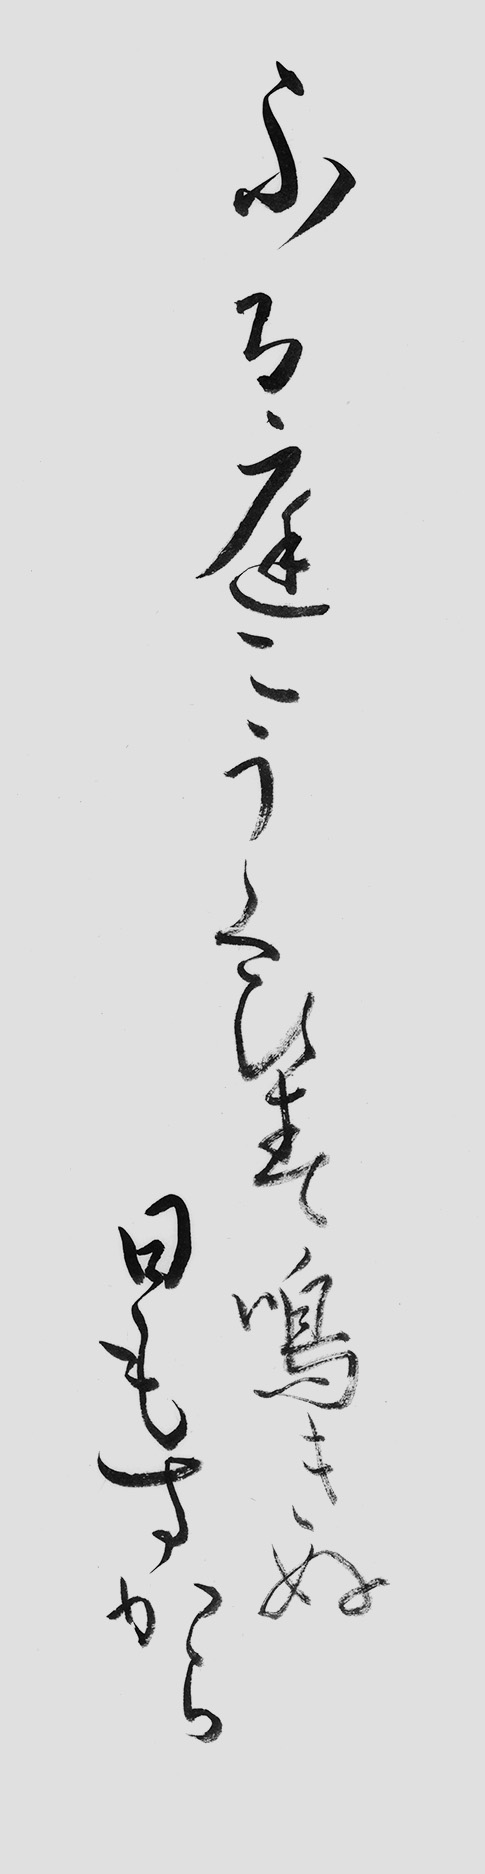 ふる庭にうくひす鳴きぬ
日もすから